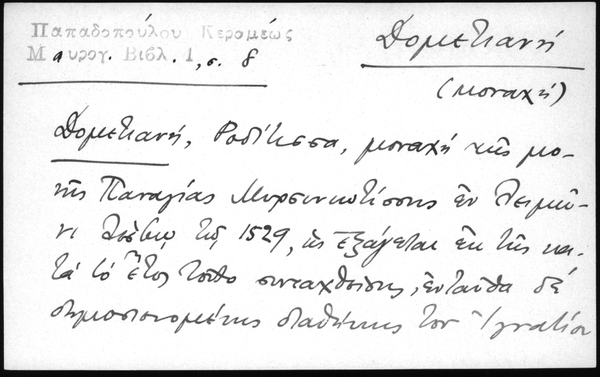 Παπαδοπούλου Κεραμέως
Μαυρογ. Βιβλ. 1, σ. 8
Δομετιανή
(μοναχή)
Δομετιανή, Ροδίτισσα, μοναχή τῆς μο-
νῆς Παναγίας Μυρσινιωτίσσης ἐν Λειμῶ-
νι Λέσβου τῷ 1529, ὡς ἐξάγεται ἐκ τῆς κα-
τά τό ἔτος τοῦτο συνταχθείσης, ἐνταῦθα δέ
δημοσιευομένης διαθήκης τοῦ Ἰγνατίου